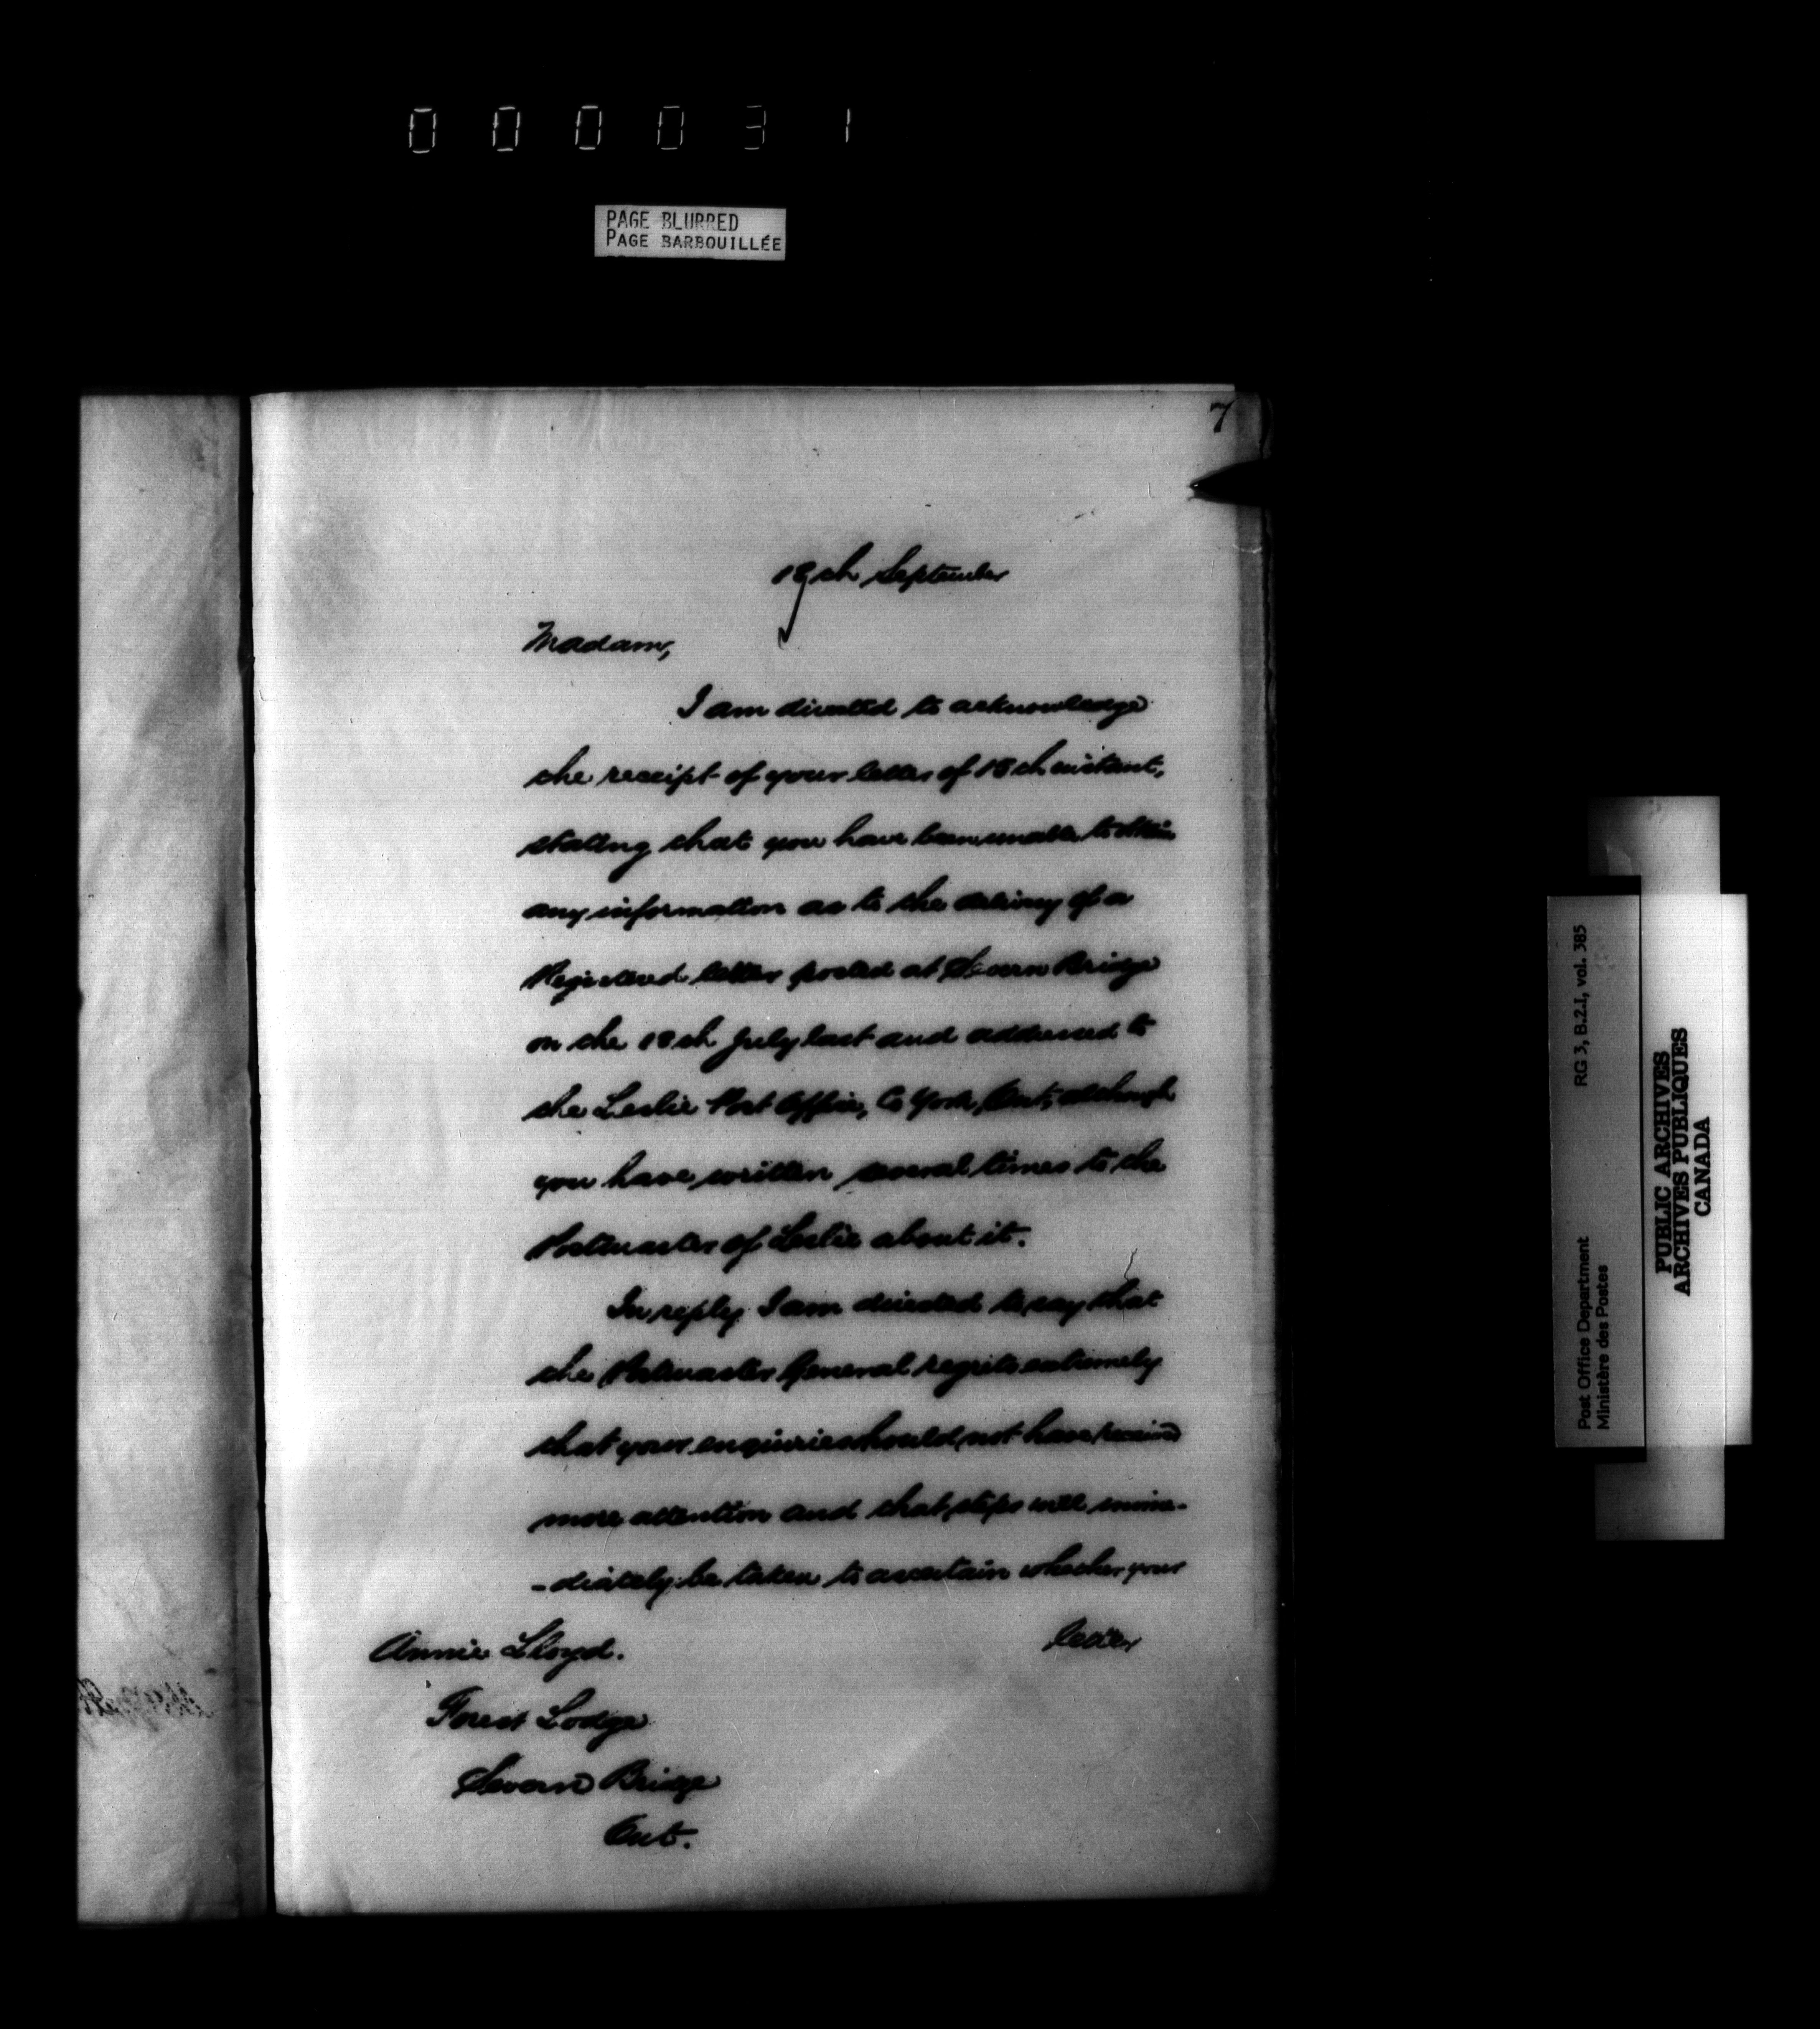 000031
PAGE BLURRED
PAGE BARBOUILLÉE
7
September
Madam,
I am directed to acknowledge
the receipt of your letter of 18th instant,
stating that you have been unable to obtain
any information as to the delivery of a
Registered letter posted at Severn Bridge
on the 18th July last and addressed to
the Leslie Post Office, Co York, Ont, although
you have written several times to the
Postmaster of Leslie about it.
In reply I am directed to say that
the Postmaster General regrets extremely
that your enquiries should not have received
more attention and that steps will imme-
-diately be taken to ascertain whether your
letter
Annie Lloyd.
Forest Lodge
Severn Bridge
Ont.
Post Office Department RG 3, B.2.I, vol. 385
Ministère des Postes
PUBLIC ARCHIVES
ARCHIVES PUBLIQUES
CANADA